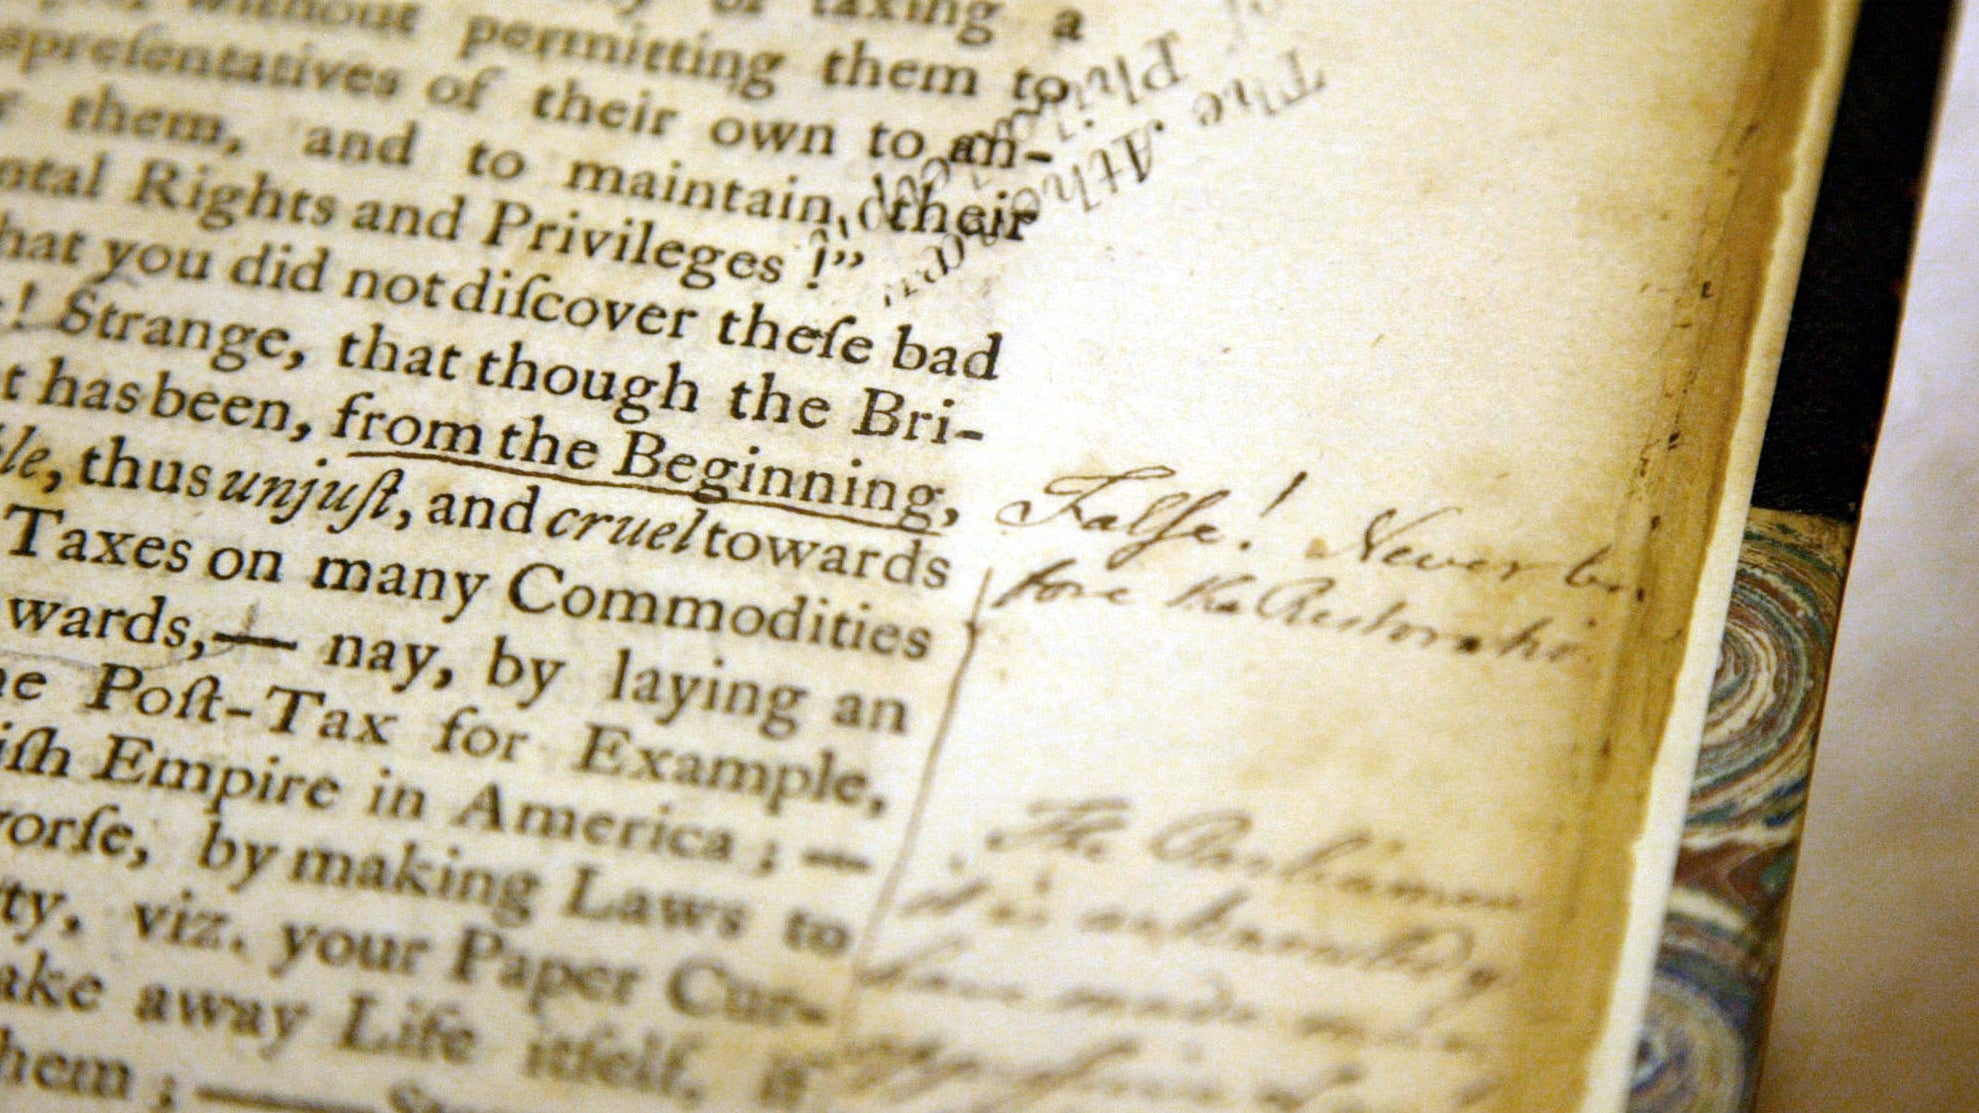 of taxing a
without permitting them to
epreſentatives of their own to an-
f them, and to maintain, their
ntal Rights and Privileges !”
hat you did not diſcover theſe bad
! Strange, that though the Bri-
t has been, from the Beginning,
le, thus unjuſt, and cruel towards
Taxes on many Commodities
wards,— nay, by laying an
he Poſt-Tax for Example,
iſh Empire in America ; —
vorſe, by making Laws to
ty, viz. your Paper Cur-
ake away Life itſelf, if
hem ; —
The Athe
Phila
Falſe! Never be
fore the Restoratio
The Parliamen
t is acknowledg
have made